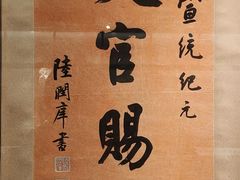 宣統紀元
官賜
陸潤庠書